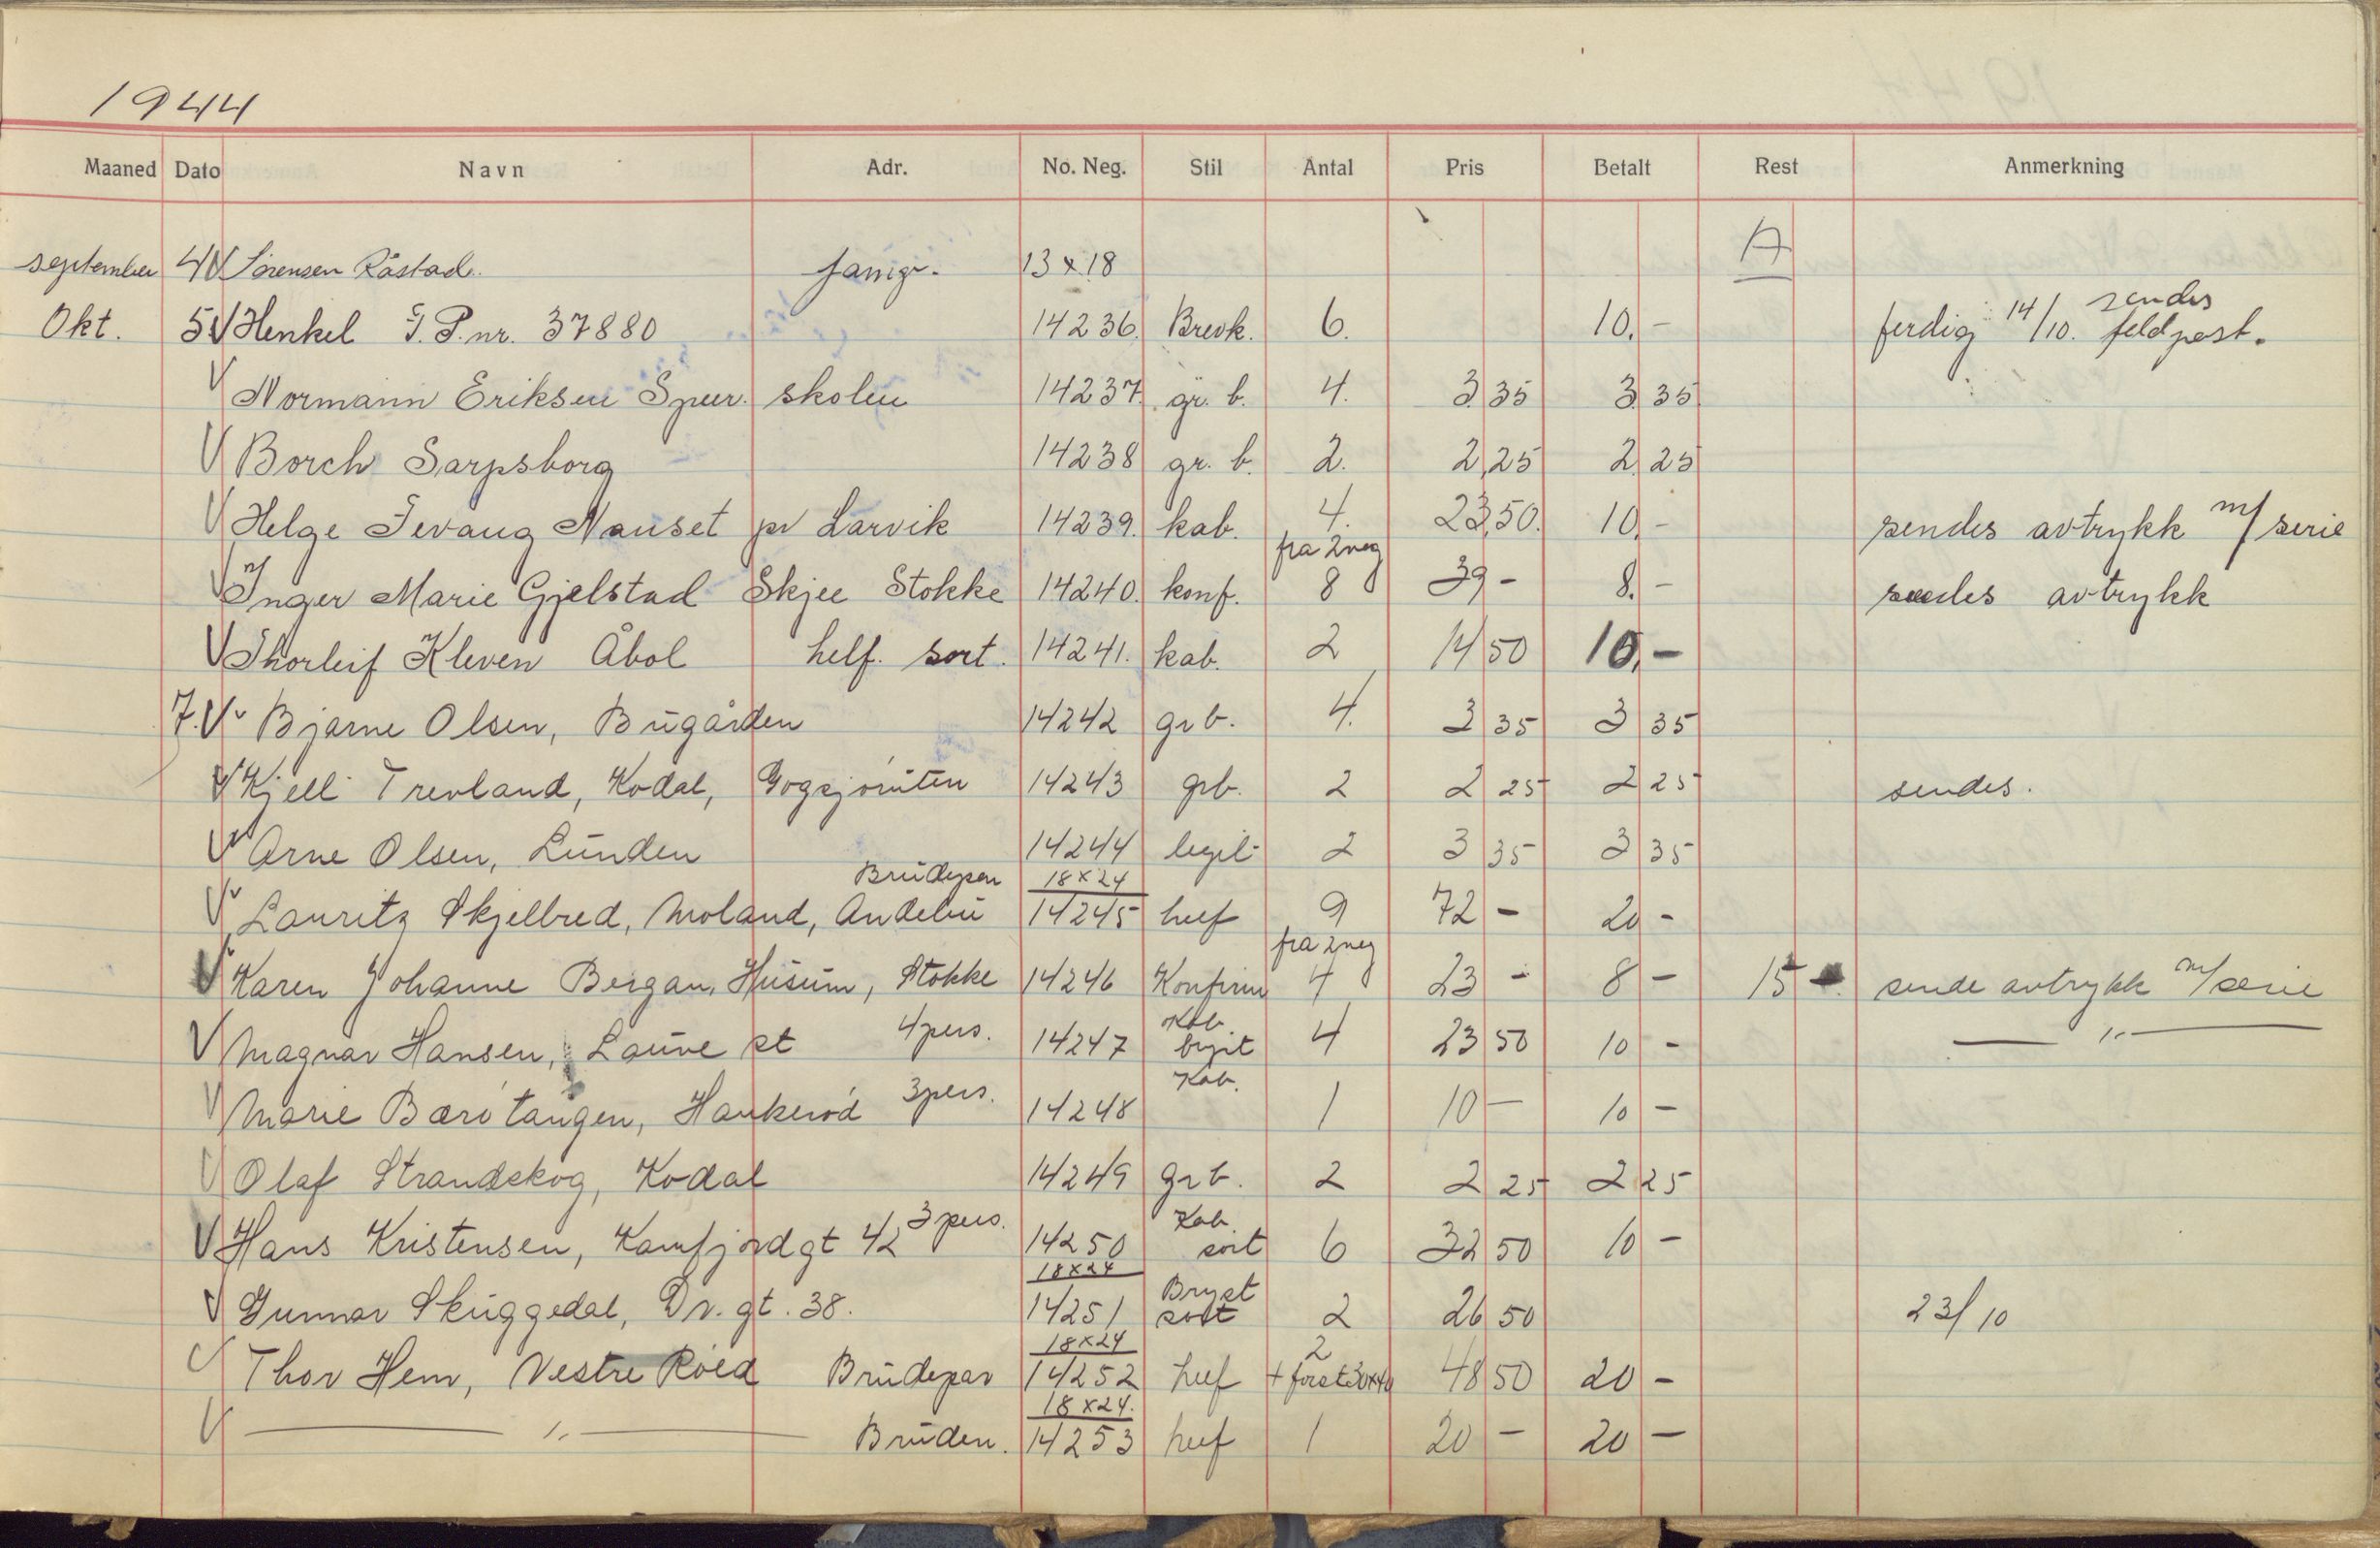 1944
Maaned Dato Navn Adr. No. Neg. Stil Antal Pris Betalt Rest Anmerkning
A
september 4 V Sørensen Råstad. 13 x 18
Okt. 5 V Henkel F. P. nr. 37880 14236. Brevk. 6. 10.- ferdig 14/10. sendes feldpost.
V Normann Eriksen Speer. skolen 14237. gr. b. 4. 3.35 3.35
V Borch Sarpsborg 14238 gr. b. 2. 2,25 2.25
V Helge Tevang Nauset pr Larvik 14239. kab. 4. 23,50. 10,- sendes avtrykk m/ serie
fra 2 neg
V Inger Marie Gjelstad Skjee Stokke 14240. konf. 8 39 - 8.- sendes avtrykk
V Thorleif Kleven Åbol helf. sort. 14241. kab. 2 14 50 10,-
7. V Bjarne Olsen, Bugården 14242 gr b. 4. 3 35 3 35
V Kjell Trevland, Kodal, Gogsjøruten 14243 grb. 2 2 25 2 25 sendes.
V Arne Olsen, Lunden 14244 legit 2 3 35 3 35
Brudepar 18x24
V Lauritz Skjelbred, Moland, Andebu 14245 heef 9 72 - 20 -
fra 2 neg
V Karen Johanne Bergan, Husum, Stokke 14246 Konfirm 4 23 - 8 - 15 - sende avtrykk m/serie
V Magnar Hansen, Lauve st 4 pers. 14247 Kab. bryst 4 23 50 10 - — " —
V Marie Bærø tangen, Haukerød 3 pers. 14248 Kab. 1 10 — 10 -
V Olaf Strandskog, Kodal 14249 grb. 2 2 25 2 25
V Hans Kristensen, Kamfjordgt 42 3 pers. 14250 Kab. sort 6 32 50 10 -
18x24
V Gunnar Skuggedal, Dr. gt. 38. 14251 Bryst sort 2 26 50 23/10
18x24 2
V Thor Hem, Vestre Røed Brudepar 14252 heef + forst 30x40 48 50 20 -
18x24.
V — " — Bruden. 14253 heef 1 20 - 20 -